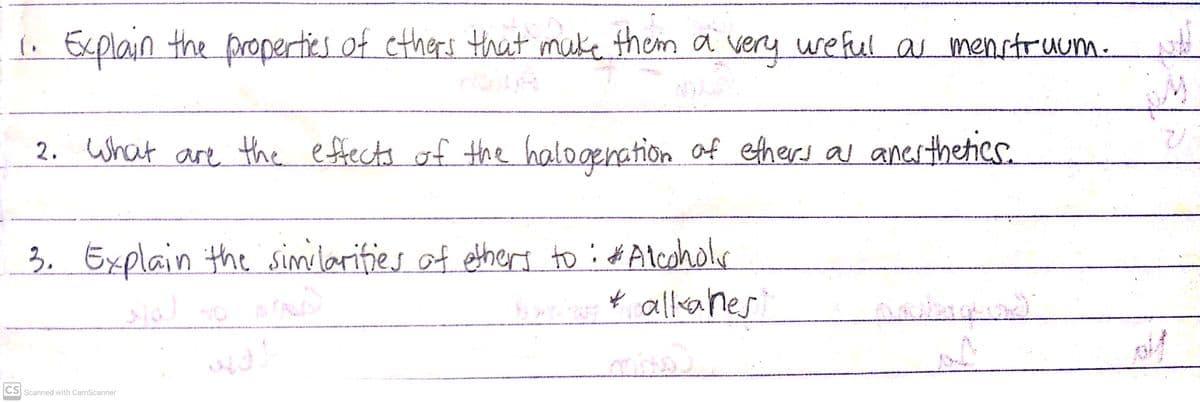 1. Explain the properties of ethers that make them a very useful as menstruum.
2. What are the effects of the halogenation of ethers as anesthetics.
3. Explain the similarities of ethers to : * Alcohols
* alkanes
CS Scanned with CamScanner